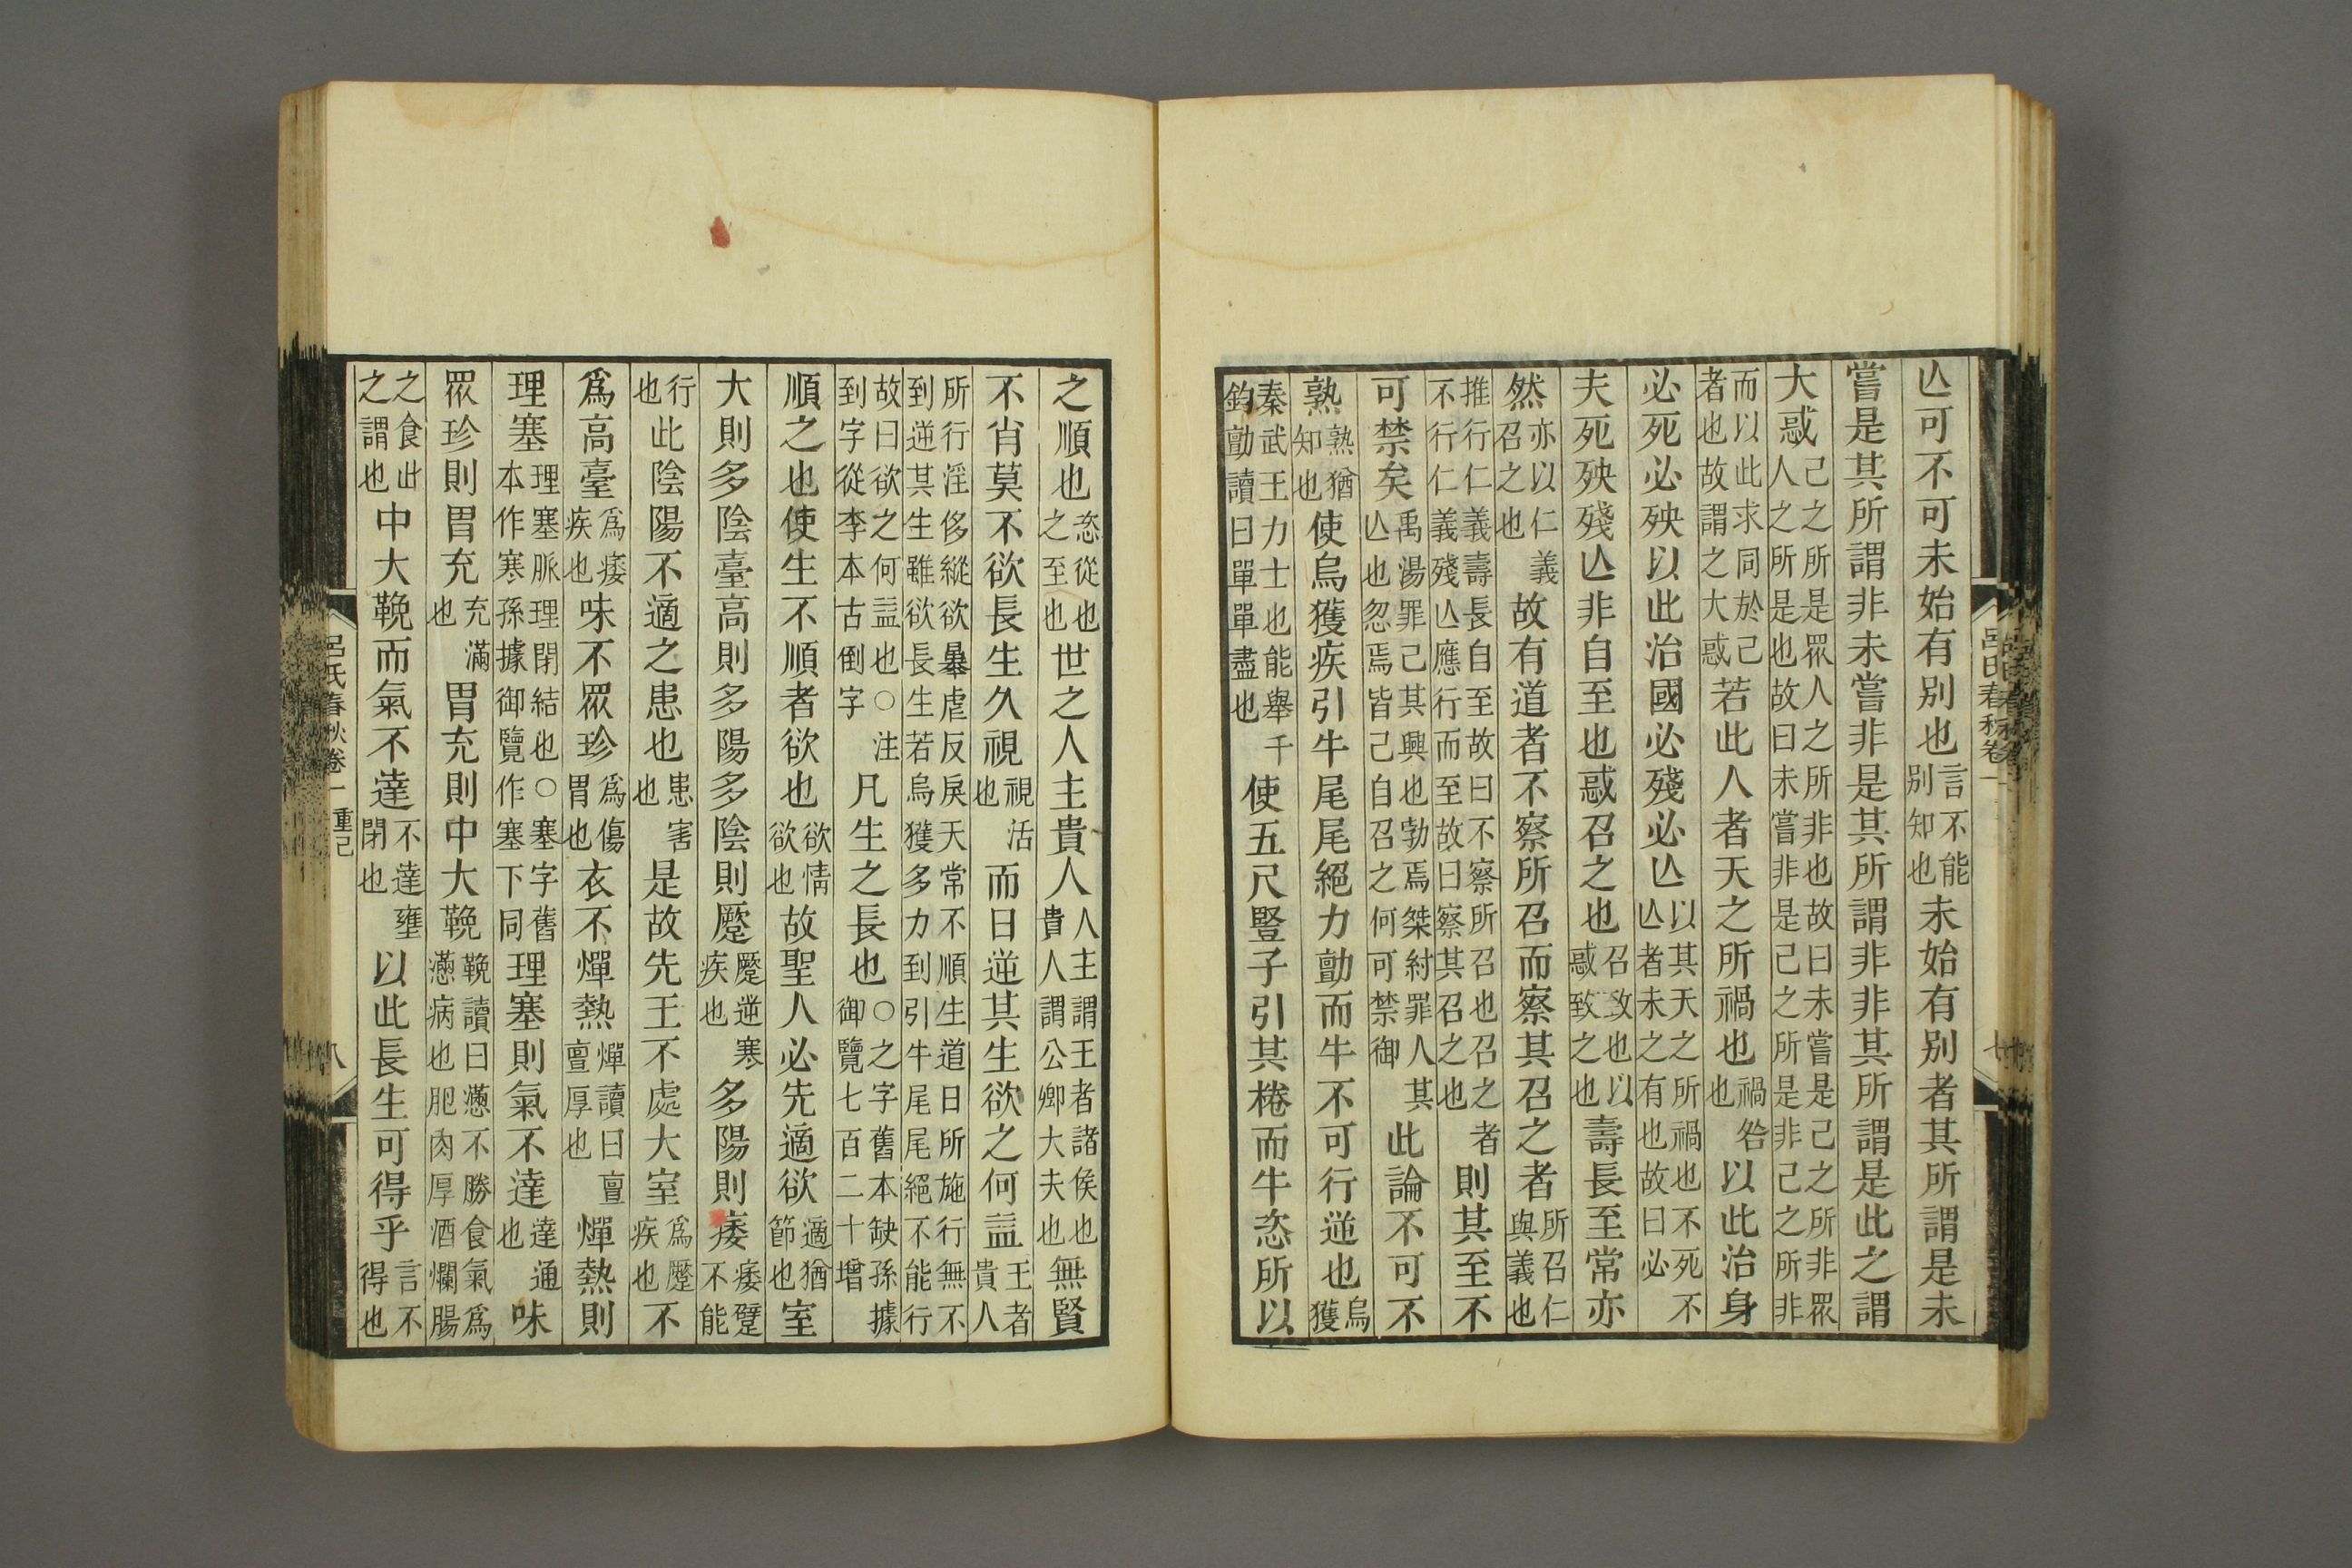 亾可不可未始有别也言不能别知也未始有别者其所謂是未
嘗是其所謂非未嘗非是其所謂非非其所謂是此之謂
大惑己之所是眾人之所非也故曰未嘗是己之所非眾人之所是也故曰未嘗非是己之所是非己之所非
而以此求同於己者也故謂之大惑若此人者天之所禍也禍咎也以此治身
必死必殃以此治國必殘必亾以其天之所禍也不死不亾者未之有也故曰必
夫死殃殘亾非自至也惑召之也召致也以惑致之也壽長至常亦
然亦以仁義召之也故有道者不察所召而察其召之者所召仁與義也
推行仁義壽長自至故曰不察所召也召之者不行仁義殘亾應行而至故曰察其召之也則其至不
可禁矣禹湯罪己其興也勃焉桀紂罪人其亾也忽焉皆己自召之何可禁御此論不可不
熟熟猶知也使烏獲疾引牛尾尾絕力勯而牛不可行逆也烏獲
秦武王力士也能舉千鈞勯讀曰單單盡也使五尺豎子引其棬而牛恣所以
呂氏春秋卷一
七
之順也恣從也之至也世之人主貴人人主謂王者諸侯也貴人謂公卿大夫也無賢
不肖莫不欲長生久視視活也而日逆其生欲之何益王者貴人
所行淫侈縱欲暴虐反戾天常不順生道日所施行無不到逆其生雖欲長生若烏獲多力到引牛尾尾絕不能行
故曰欲之何益也○注到字從李本古倒字凡生之長也○之字舊本缺孫據御覽七百二十增
順之也使生不順者欲也欲情欲也故聖人必先適欲適猶節也室
大則多陰臺高則多陽多陰則蹷蹷逆寒疾也多陽則痿痿躄不能
行也此陰陽不適之患也患害也是故先王不處大室為蹷疾也不
為高臺為痿疾也味不眾珍為傷胃也衣不燀熱燀讀曰亶亶厚也燀熱則
理塞理塞脈理閉結也○塞字舊本作寒孫據御覽作塞下同理塞則氣不達達通也味
眾珍則胃充充滿也胃充則中大鞔鞔讀曰懣不勝食氣為懣病也肥肉厚酒爛腸
之食此之謂也中大鞔而氣不達不達壅閉也以此長生可得乎言不得也
呂氏春秋卷一 重己
八